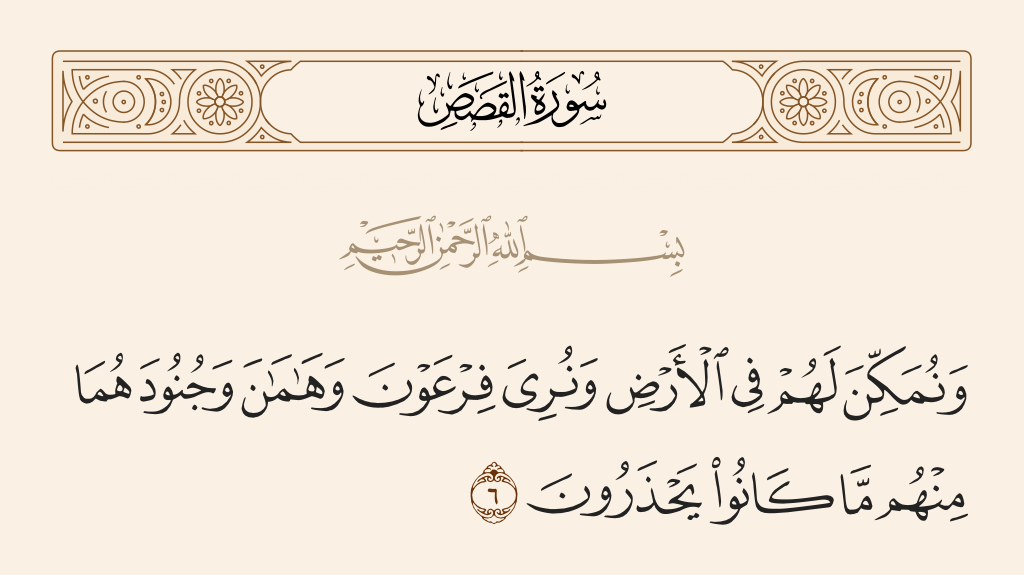 سُورَةُ القَصَصِ
بِسْمِ ٱللَّهِ ٱلرَّحْمَٰنِ ٱلرَّحِيمِ
وَنُمَكِّنَ لَهُمْ فِى ٱلْأَرْضِ وَنُرِىَ فِرْعَوْنَ وَهَٰمَٰنَ وَجُنُودَهُمَا
مِنْهُم مَّا كَانُوا۟ يَحْذَرُونَ ٦